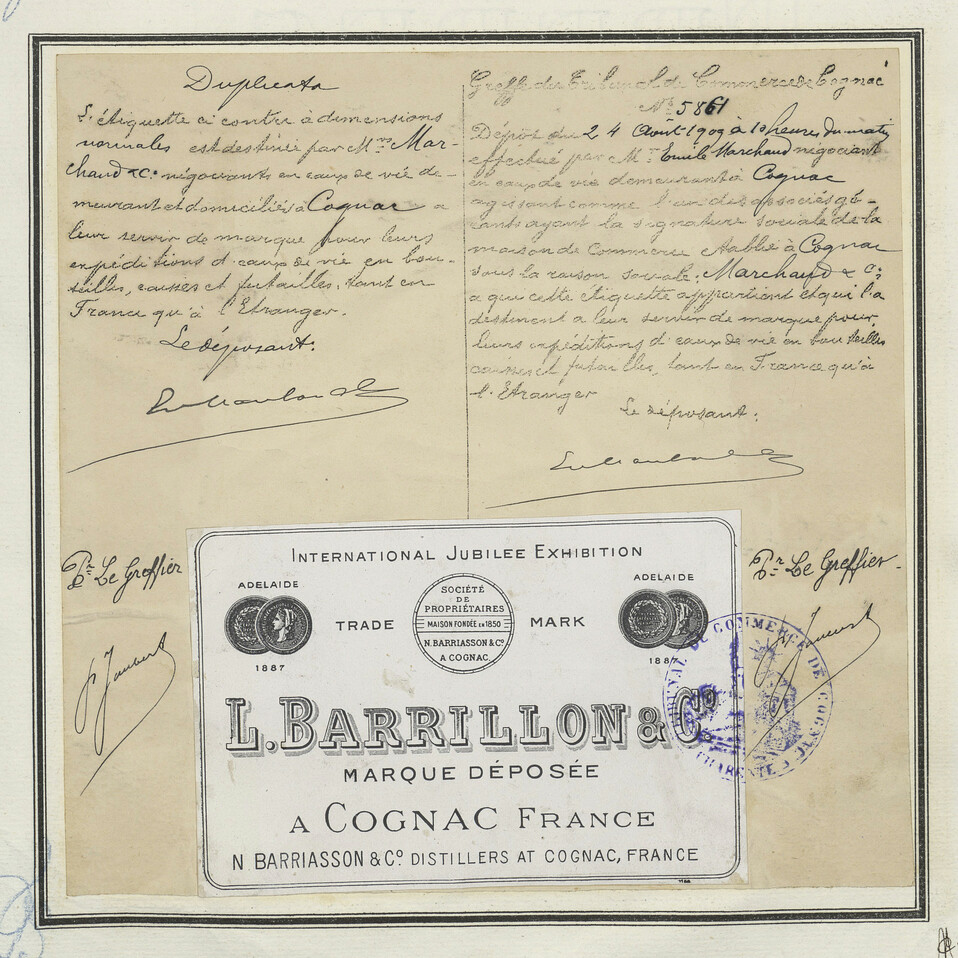 Duplicata
L'étiquette ci contre à dimensions
normales est destinée par Mrs Mar-
chand & Cie négociants en eaux de vie de-
meurant et domiciliés à Cognac a
leur servir de marque pour leurs
expéditions d'eaux de vie en bou-
teilles, caisses et futailles, tant en
France qu'à l'Etranger.
Le déposant.
Pr Le Greffier
Greffe du Tribunal de Commerce de Cognac
No 5861
Dépôt du 24 Aout 1909 à 10 heures du matin
effectué par Mr Emile Marchand négociant
en eaux de vie demeurant à Cognac
agissant comme l'un des associés gé-
rants ayant la signature sociale de la
maison de Commerce établie à Cognac
sous la raison sociale: Marchand & Cie
a qui cette étiquette appartient et qui l'a
destinent a leur servir de marque pour
leurs expéditions d'eaux de vie en bouteilles
caisses et futailles, tant en France qu'à
l'Etranger
Le déposant.
Pr Le Greffier
INTERNATIONAL JUBILEE EXHIBITION
ADELAIDE
1887
TRADE
SOCIÉTÉ
DE
PROPRIÉTAIRES
MAISON FONDÉE EN 1850
N. BARRIASSON & Co
A COGNAC.
MARK
ADELAIDE
1887
L. BARRILLON & Co
MARQUE DÉPOSÉE
A COGNAC FRANCE
N BARRIASSON & Co DISTILLERS AT COGNAC, FRANCE
TRIBUNAL DE COMMERCE DE COGNAC